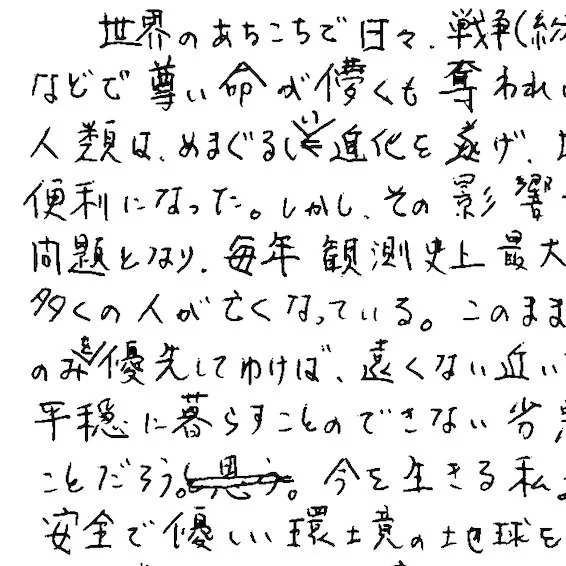 世界のあちこちで日々、戦争(紛
などで尊い命が儚くも奪われ
人類は、めまぐるしい進化を遂げ、
便利になった。しかし、その影響
問題となり、毎年観測史上最大
多くの人が亡くなっている。このまま
のみを優先してゆけば、遠くない近い
平穏に暮らすことのできない劣悪
ことだろう。と思う。今を生きる私
安全で優しい環境の地球を